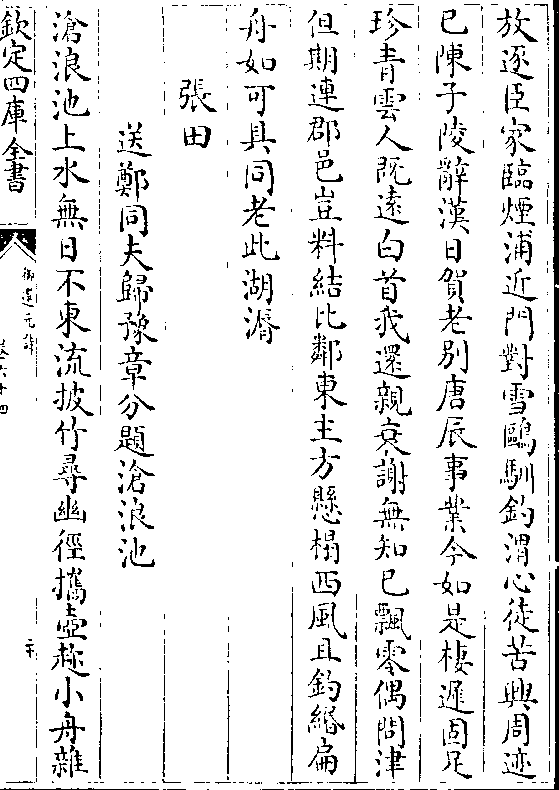 放逐臣家臨煙浦近門對雪鷗馴釣渭心徒苦興周迹
已陳子陵辭漢日賀老别唐辰事業今如是棲遲固足
珍青雲人既逺白首我還親衰謝無知已飄零偶問津
但期連郡邑豈料結比鄰東主方懸榻西風且釣緡扁
舟如可具同老此湖漘
張田
送鄭同夫歸豫章分題滄浪池
滄浪池上水無日不東流披竹尋幽徑攜壺趂小舟雜
欽定四庫全書
御選元詩
卷六十四